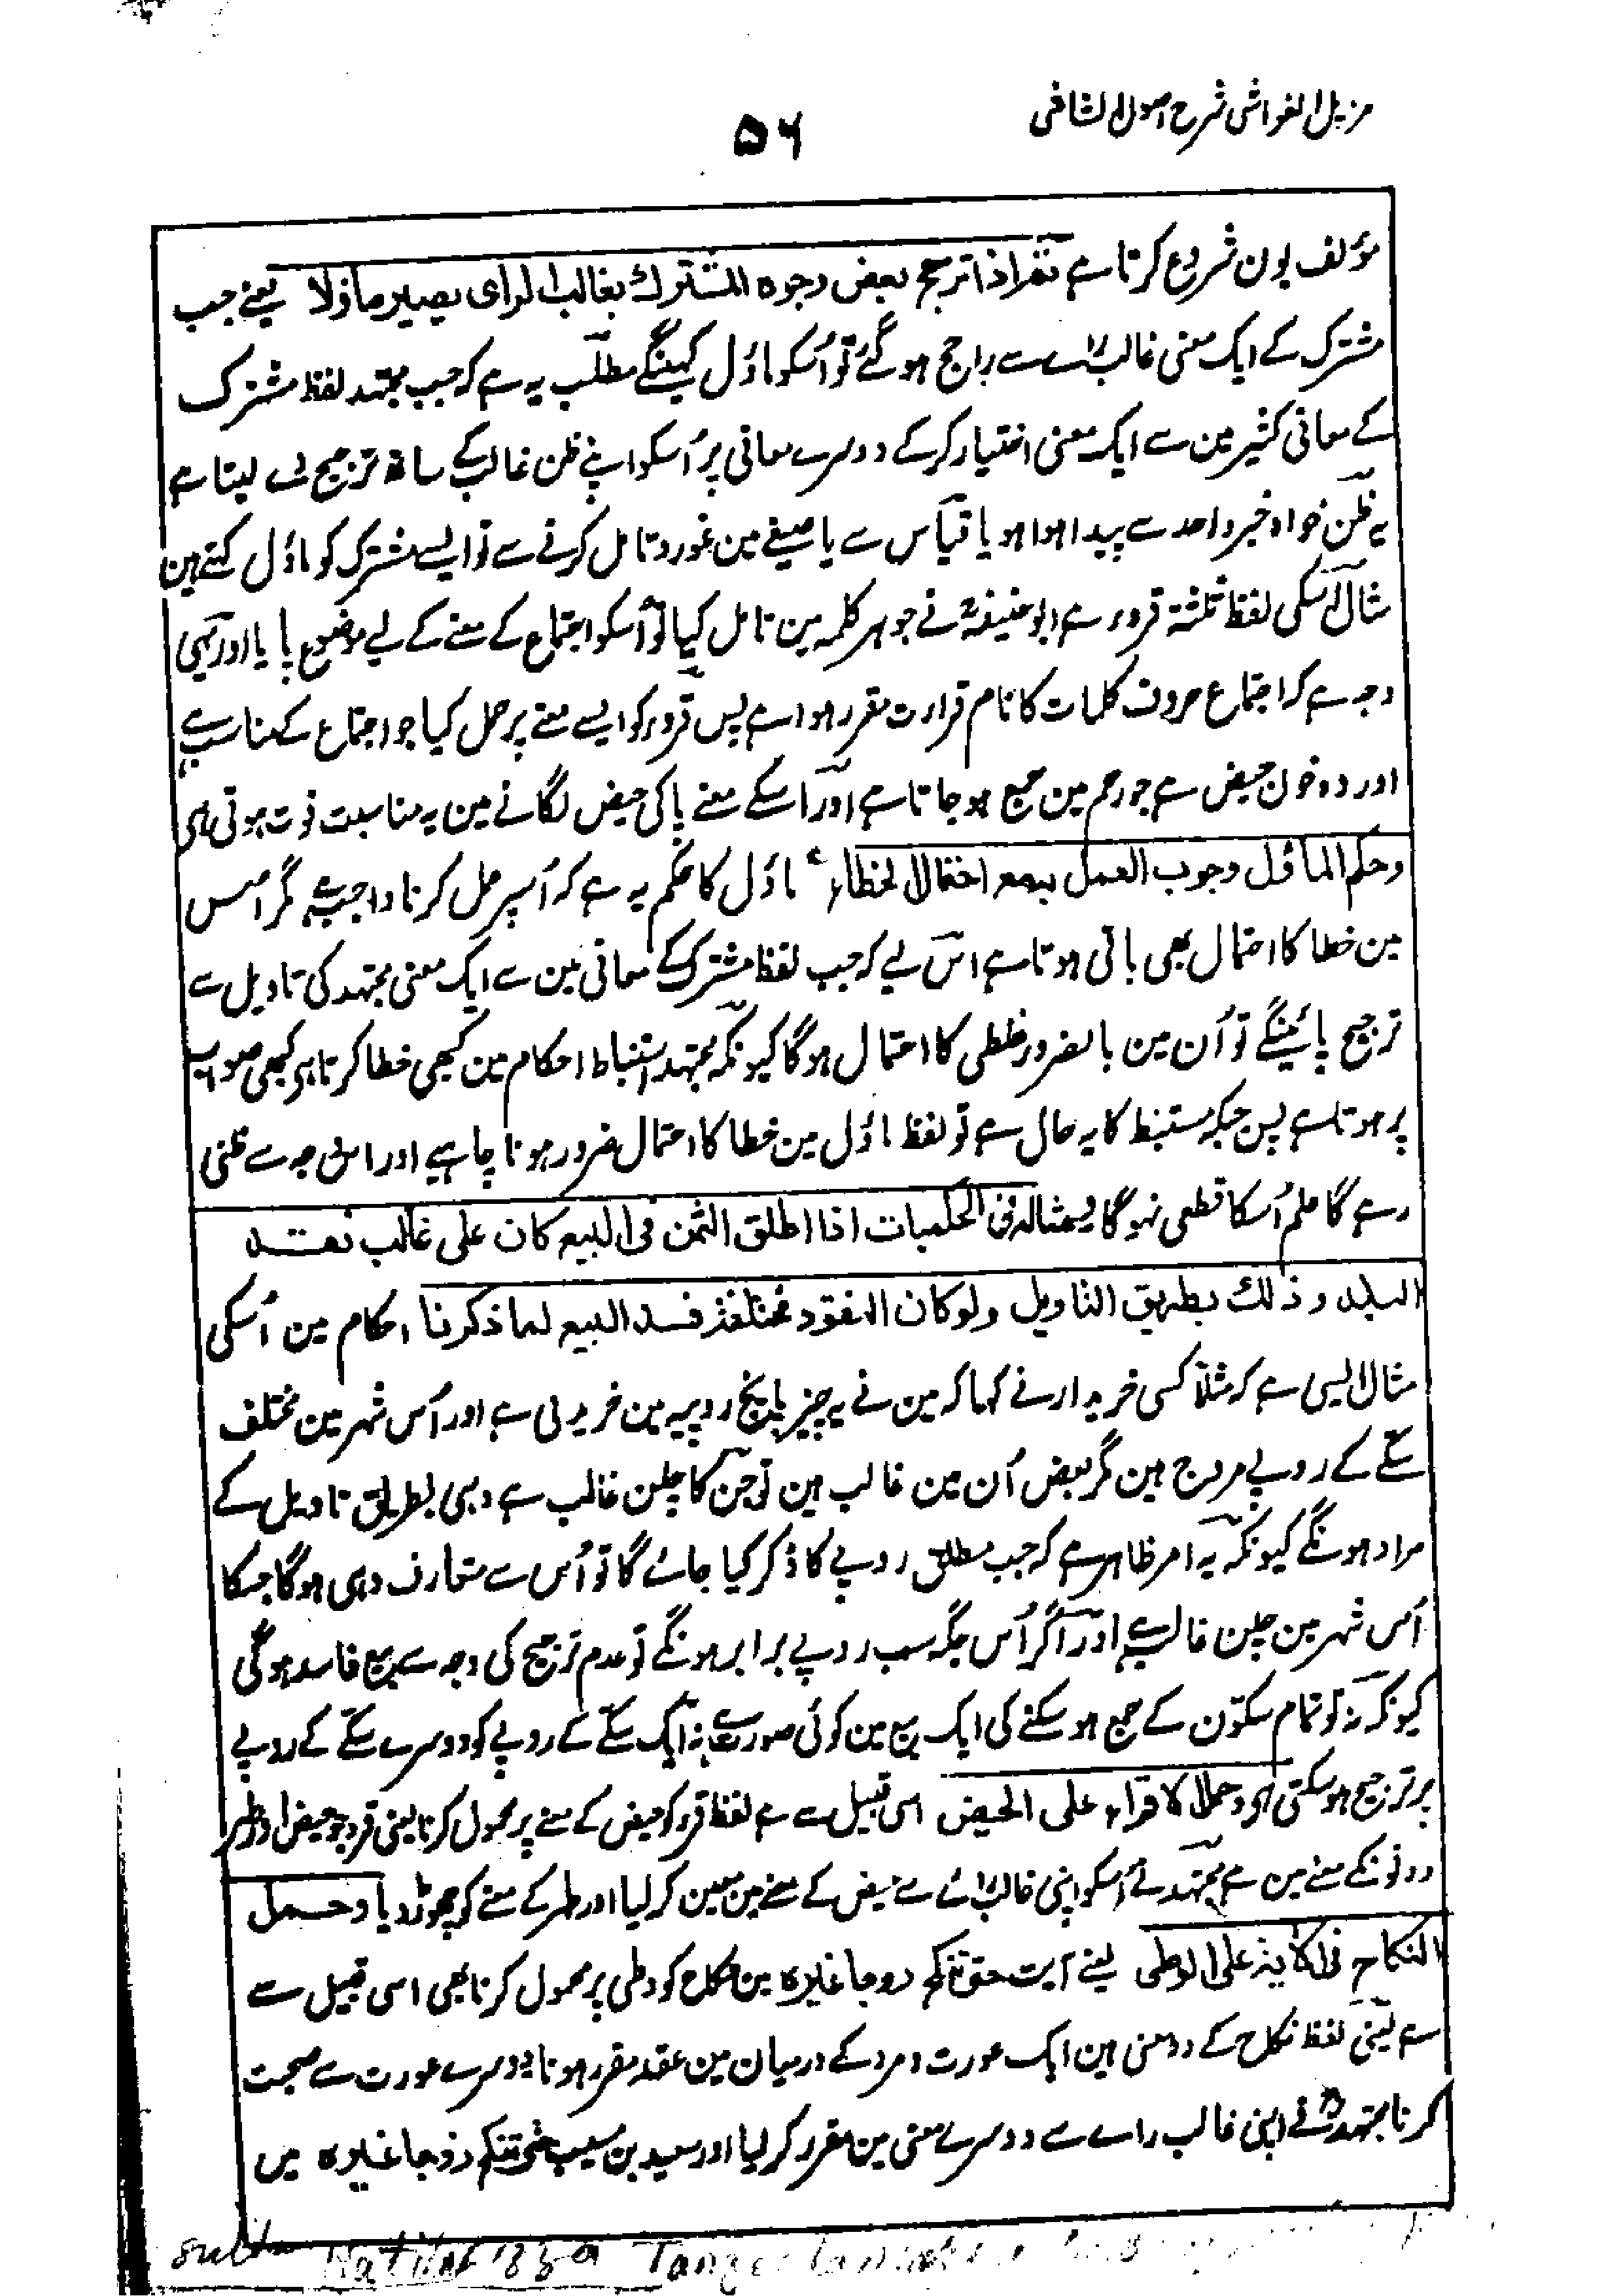 مزیل الغواشی شرح اصول الشاشی
۵۶
مؤلف یون شروع کرتا ہے ثم اذا ترجح بعض وجوہ المشترك بغالب الرای یصیر ماؤلا یعنے جب
مشترک کے ایک معنی غالب راے سے راجح ہو گئے تو اُسکو ماؤل کہینگے مطلب یہ ہے کہ جب مجتہد لفظ مشترک
کے معانی کثیر مین سے ایک معنی اختیار کر کے دوسرے معانی پر اُسکو اپنے ظن غالب کے ساتھ ترجیح دے لیتا ہے
یہ ظن خواہ خبر واحد سے پیدا ہوا ہو یا قیاس سے یا صیغے مین غور و تامل کرنے سے تو ایسے مشترک کو ماؤل کہتے ہین
مثال اسکی لفظ ثلثة قروء ہے ابو حنیفہؒ نے جوہر کلمہ مین تامل کیا تو اُسکو اجتماع کے معنے کے لیے موضوع پایا اور یہی
وجہ ہے کہ اجتماع حروف کلمات کا نام قراءت مقرر ہوا ہے پس قروء کو ایسے معنے پر حمل کیا جو اجتماع کے مناسب ہے
اور وہ خون حیض ہے جو رحم مین جمع ہو جاتا ہے اور اسکے معنے پاکی حیض لگانے مین یہ مناسبت فوت ہوتی ہی
وحکم الماؤل وجوب العمل بہ مع احتمال الخطاء ماؤل کا حکم یہ ہے کہ اُسپر عمل کرنا واجب ہے مگر اُس
مین خطا کا احتمال بھی باقی ہوتا ہے اس لیے کہ جب لفظ مشترک کے معانی مین سے ایک معنی مجتہد کی تاویل سے
ترجیح پائینگے تو اُن مین بالضرور غلطی کا احتمال ہو گا کیونکہ مجتہد استنباط احکام مین کبھی خطا کرتا ہی کبھی صواب
پر ہوتا ہے پس جبکہ مستنبط کا یہ حال ہے تو لفظ ماؤل مین خطا کا احتمال ضرور ہونا چاہیے اور اس وجہ سے ظنی
رہے گا علم اُسکا قطعی نہو گا ومثالہ فی الحکمیات اذا اطلق الثمن فی البیع کان علی غالب نقد
البلد وذلك بطریق التاویل ولوکان النقود مختلفة فسد البیع لما ذکرنا احکام مین اُسکی
مثال ایسی ہے کہ مثلاً کسی خریدار نے کہا کہ مین نے یہ چیز پانچ روپیہ مین خرید لی ہے اور اُس شہر مین مختلف
سکّے کے روپے مروج ہین مگر بعض اُن مین غالب ہین تو جن کا چلن غالب ہے وہی بطریق تاویل کے
مراد ہونگے کیونکہ یہ امر ظاہر ہے کہ جب مطلق روپے کا ذکر کیا جائے گا تو اُس سے متعارف وہی ہو گا جسکا
اُس شہر مین چلن غالب ہے اور اگر اُس جگہ سب روپے برابر ہونگے تو عدم ترجیح کی وجہ سے بیع فاسد ہو گی
کیونکہ نہ تو تمام سکّون کے جمع ہو سکنے کی ایک بیع مین کوئی صورت ہے نہ ایک سکّے کے روپے کو دوسرے سکّے کے روپے
پر ترجیح ہو سکتی ہی وحمل الاقراء علی الحیض اسی قبیل سے ہے لفظ قروء کو حیض کے معنے پر محمول کرنا یعنی قرء جو حیض اور طہر
دونونکے معنے مین ہے مجتہد نے اُسکو اپنی غالب راے سے حیض کے معنے مین معین کر لیا اور طہر کے معنے کو چھوڑ دیا وحمل
النکاح فی الآیة علی الوطی یعنے آیت حتی تنکح زوجا غیرہ مین نکاح کو وطی پر محمول کرنا بھی اسی قبیل سے
ہے یعنی لفظ نکاح کے دو معنی ہین ایک عورت و مرد کے درمیان مین عقد مقرر ہونا دوسرے عورت سے صحبت
کرنا مجتہد نے اپنی غالب راے سے دوسرے معنی مین مقرر کر لیا اور سعید بن مسیب حتی تنکح زوجا غیرہ میں